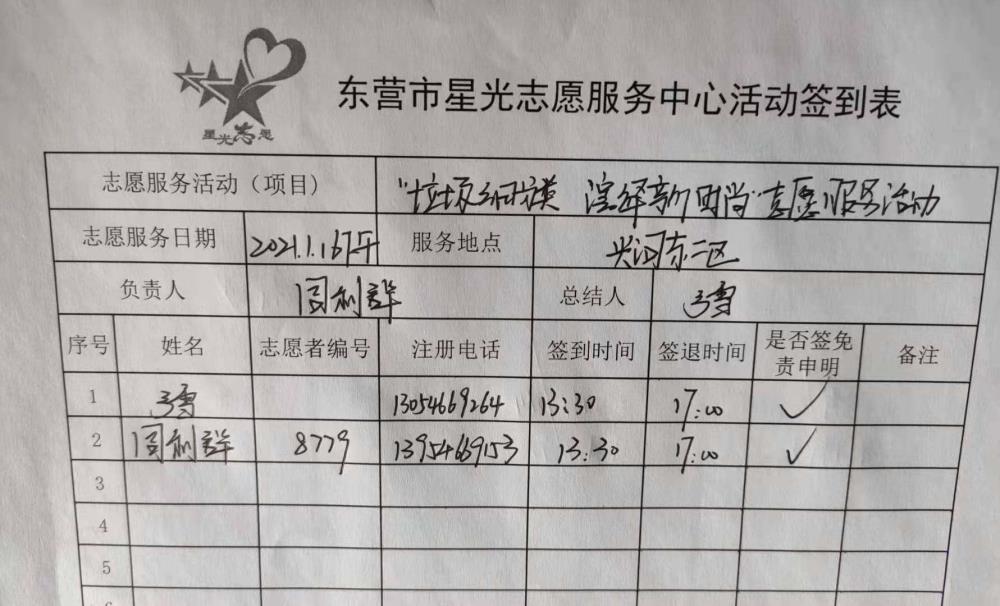 星光志愿
东营市星光志愿服务中心活动签到表
志愿服务活动（项目） "垃圾分类 演绎新时尚"志愿服务活动
志愿服务日期 2021.1.16下午 服务地点 兴河东二区
负责人 周利群 总结人 雪
序号 姓名 志愿者编号 注册电话 签到时间 签退时间 是否签免责申明 备注
1 雪 13054669264 13:30 17:00 ✓
2 周利群 8779 13954669153 13:30 17:00 ✓
3
4
5